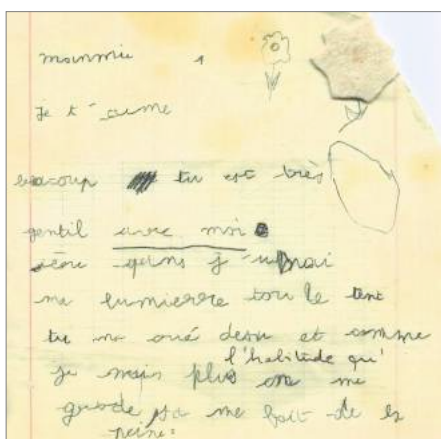 mammie
je t'aime
beaucoup tu est très
gentil avec moi
quans j'
ma lumierre tou le tent
tu ma desu et comme
l'habitude qu'
je mais plus on me
gronde sa me fait de la
peine